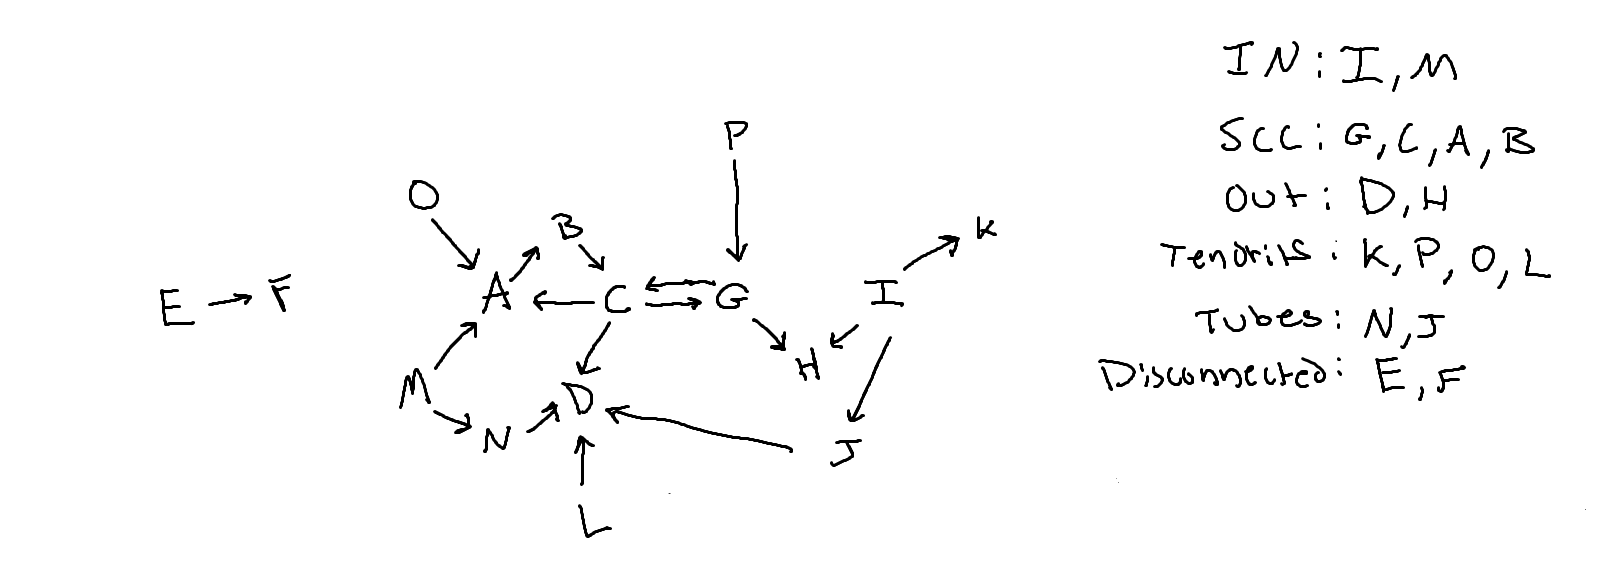 P
O
B
K
E
F
A
C
G
I
H
M
D
N
J
L
IN: I, M
SCC: G, C, A, B
Out: D, H
Tendrils: K, P, O, L
Tubes: N, J
Disconnected: E, F